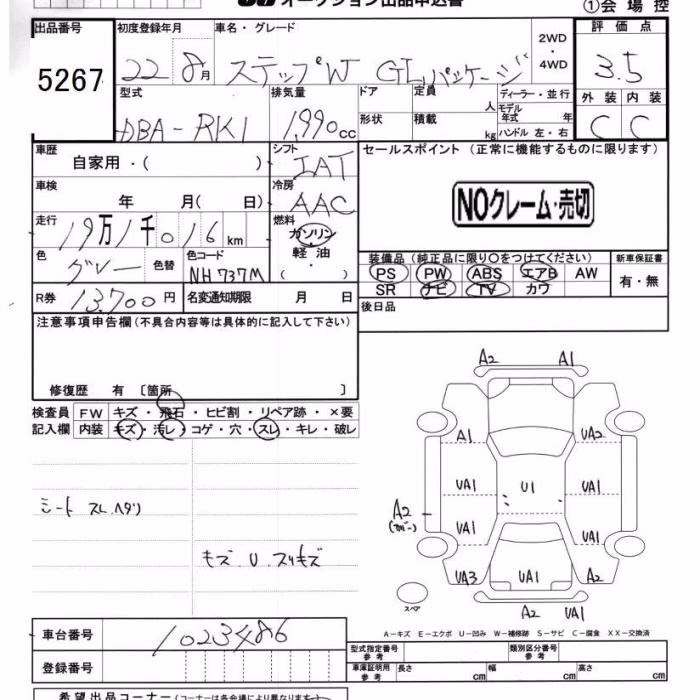 オークション出品申込書
①会場控
出品番号 初度登録年月 車名・グレード 2WD・4WD 評価点
5267 22 8月 ステップW GLパッケージ 3.5
型式 排気量 ドア 定員 人 ディーラー・並行 外装 内装
DBA-RK1 1,990cc 形状 積載 kg モデル年式 年 ハンドル 左・右 C C
車歴 自家用・( ) シフト IAT セールスポイント(正常に機能するものに限ります)
車検 年 月(日) 冷房 AAC
NOクレーム・売切
走行 19万1千016km 燃料 ガソリン・軽油・( )
色 グレー 色替 色コード NH737M
装備品(純正品に限り○をつけてください) 新車保証書
PS PW ABS エアB AW 有・無
SR ナビ TV カワ
R券 13,700円 名変通知期限 月 日
後日品
注意事項申告欄(不具合内容等は具体的に記入して下さい)
修復歴 有 〔箇所 〕
検査員記入欄 FW キズ・飛石・ヒビ割・リペア跡・×要
内装 キズ・汚レ・コゲ・穴・スレ・キレ・破レ
シート スレ.ヘタリ
キズ U スリキズ
A2 A1
A1 UA2
UA1 U1 UA1
A2
UA1 UA1
UA3 UA1 A2
スペア
A2 UA1
A-キズ E-エクボ U-凹み W-補修跡 S-サビ C-腐食 XX-交換済
車台番号 1023486
登録番号
型式指定番号 参考 類別区分番号 参考
車庫証明用 参考 長さ cm 幅 cm 高さ cm
希望出品コーナー(コーナーは各会場により異なります)